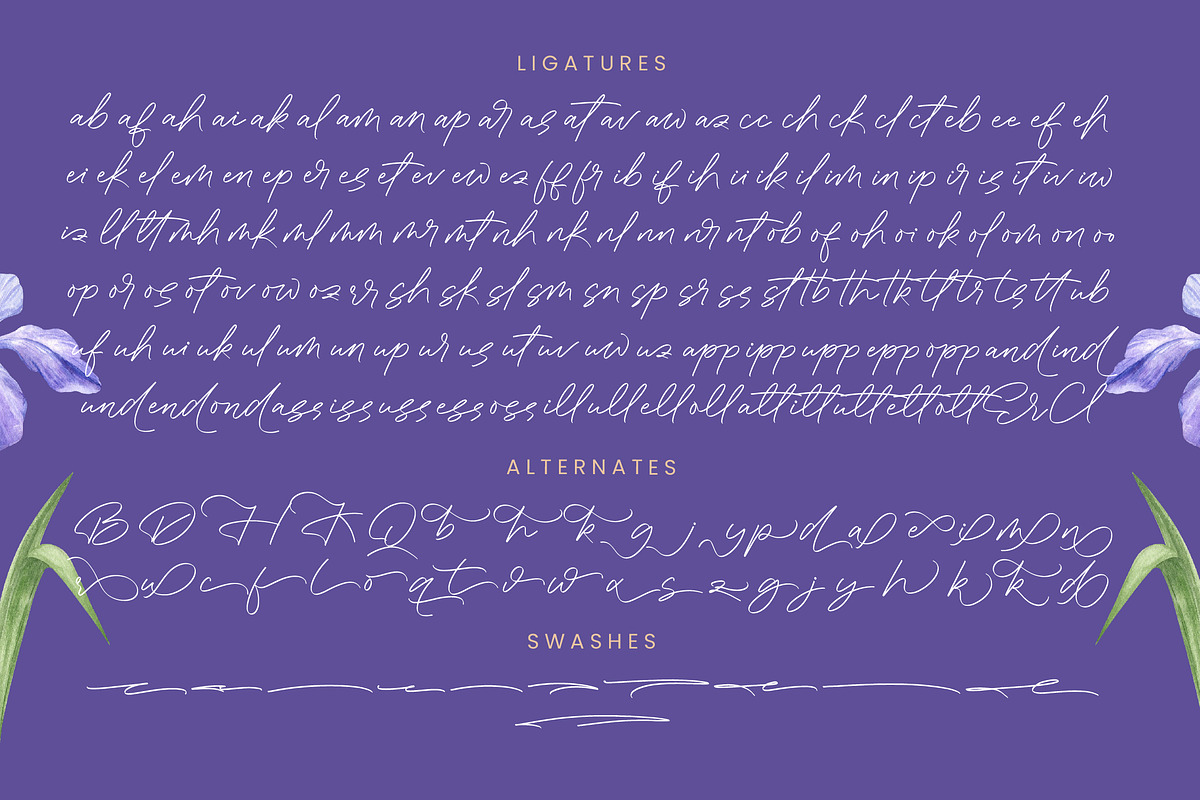 LIGATURES
ab af ah ai ak al am an ap ar as at av aw az cc ch ck cl ct eb ee ef eh
ei ek el em en ep er es et ev ew ez ff fr ib if ih ii ik il im in ip ir is it iv iw
iz ll lt mh mk ml mm mr mt nh nk nl nn nr nt ob of oh oi ok ol om on oo
op or os ot ov ow oz rr sh sk sl sm sn sp sr ss st tb th tk tl tr ts tt ub
uf uh ui uk ul um un up ur us ut uv uw uz app ipp upp epp opp and ind
und end ond ass iss uss ess oss ill ull ell oll att itt utt ett ott Er Cl
ALTERNATES
B D H K Q b h k g j y p d a e i m n
r u c f l o q t v w x s z g j y h k k d
SWASHES